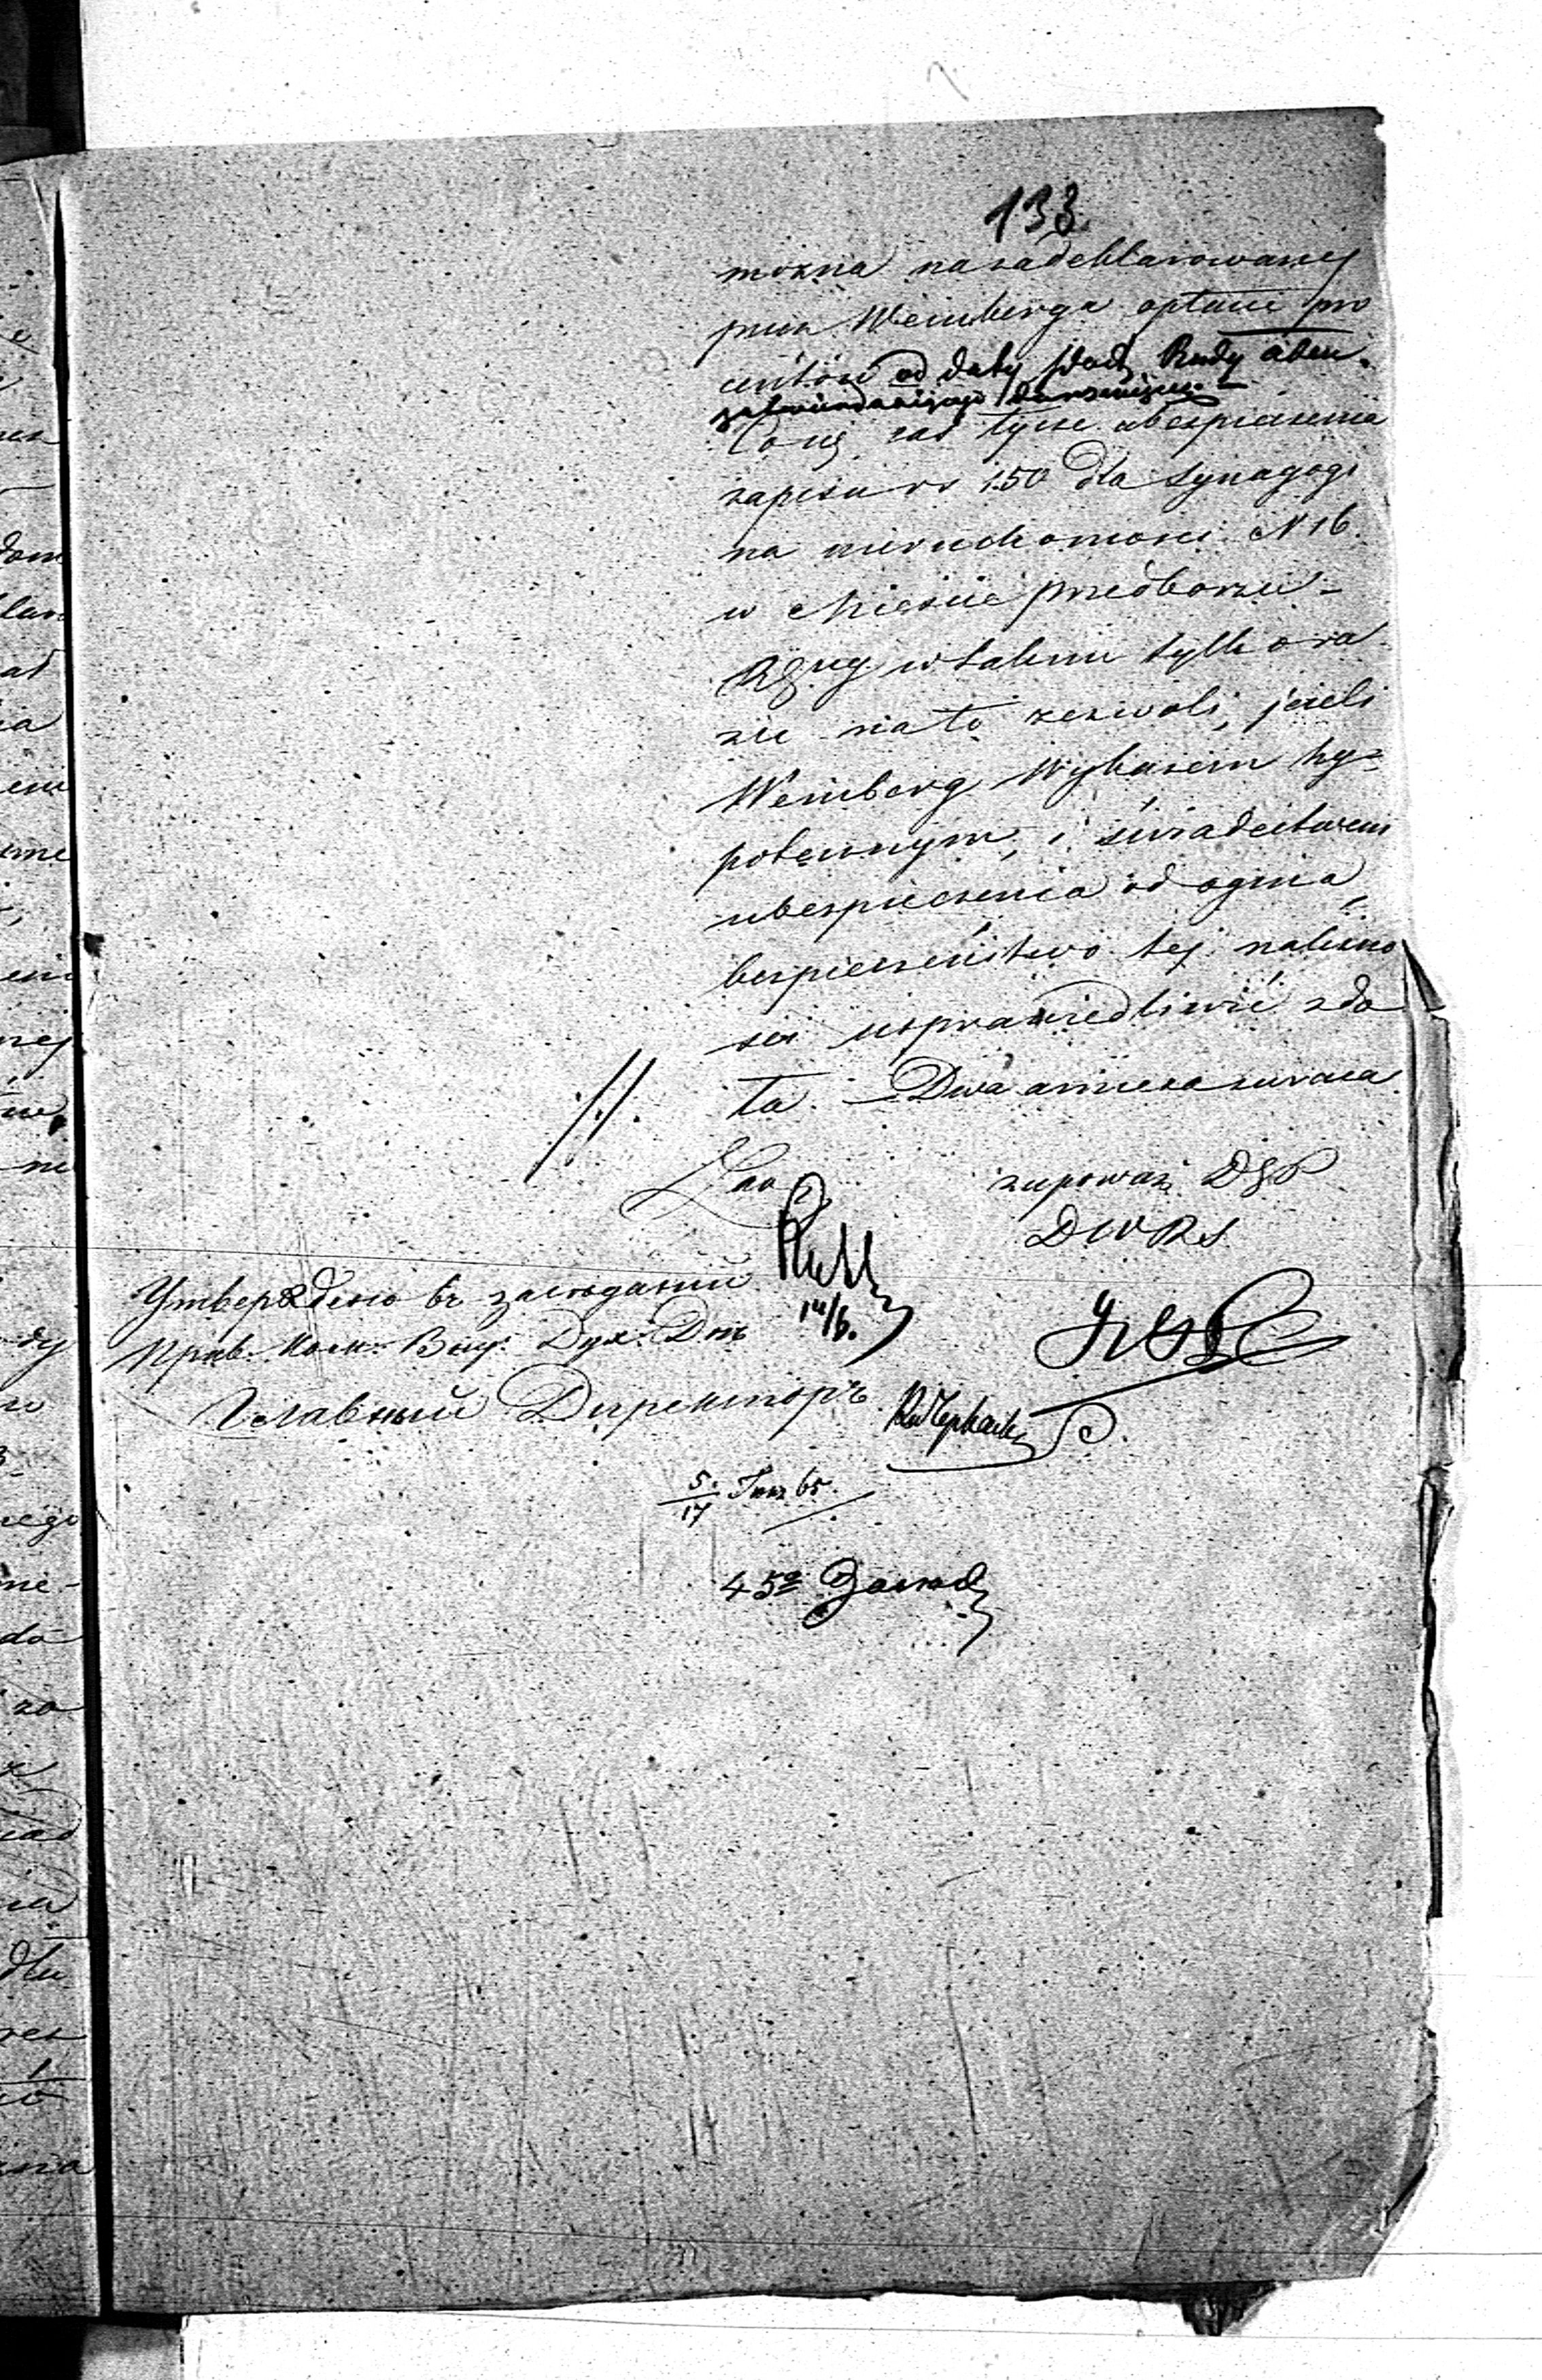 133
można na zadeklarowanej
przez Weinberga optacie pro
centów od daty
Co się zaś tycze ubespieczenia
zapisu rs 150 dla Synagogi
na nieruchomosci N 16.
w Miescie Przedborzu –
w takim tylko ra
zie na to zezwoli, jeżeli
Weinberg Wykazem hy=
potecznym, i swiadectwem
ubespieczenia od ognia,
bespieczeństwo tej należno
sci usprawiedliwić zdo
ta. – Dwa annexa zwraca
z upoważ. D G P
D W R S
Утверждено въ заседанiи
Прав. Ком. Вну. Дух. Дѣлъ
Главный Директоръ
5/17 65.
45е Засѣд